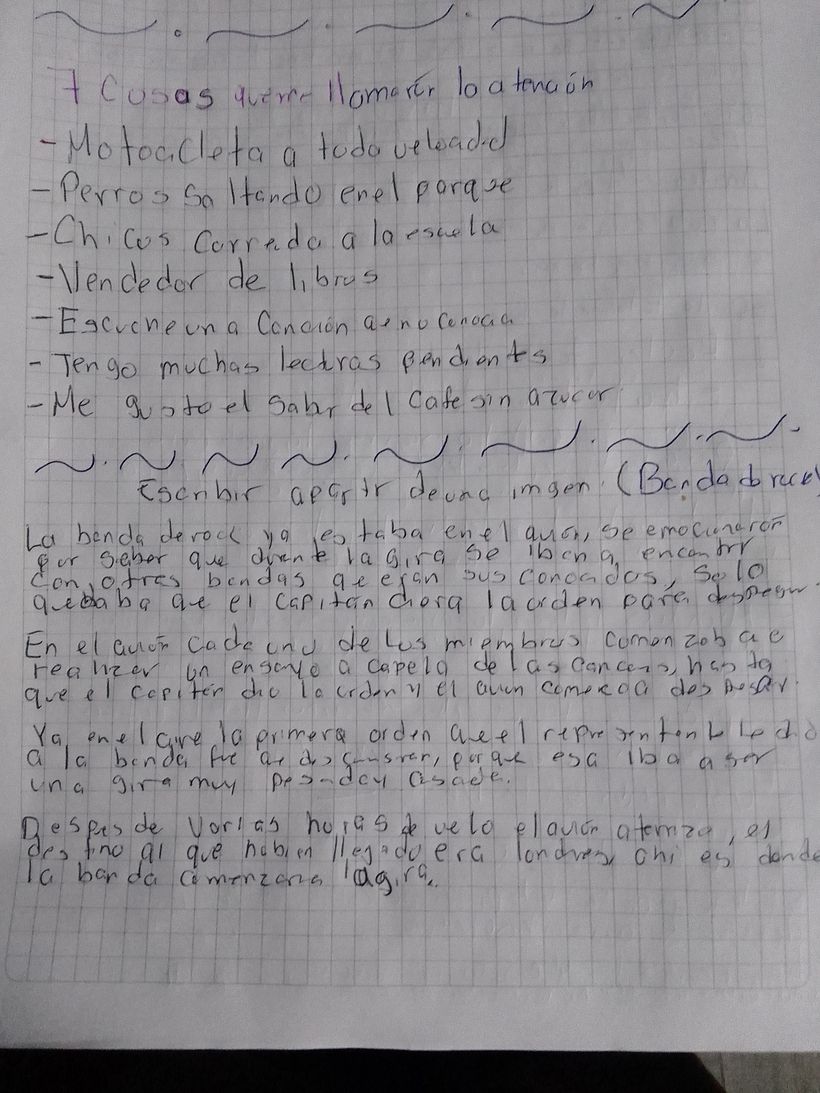 7 Cosas que me llamaron la atención
- Motocicleta a todo velocidad
- Perros Saltando en el parque
- Chicos Corredo a la escuela
- Vendedor de libros
- Escuche una Canción qe no Conocia
- Tengo muchas lectras pendients
- Me gusto el Sabr del Cafe sin azucar
Escribir apartr de una imgen (Banda de rock)
La banda de rock ya estaba en el avión, se emocionaron
por saber que durante la gira se iban a encontrr
con otras bandas qe eran sus conocidos, Solo
quedaba qe el Capitán diera la orden para
En el avión cada uno de los miembros comenzob a e
realizar un ensayo a capela de las canciones, hasta
que el capitan dio la orden y el avion comenzo a
Ya en el aire la primera orden que el representante le dio
a la banda fue de descansar, porque esa iba a ser
una gira muy pesada y
Despes de Varias horas de velo el avión aterriza, el
destino al que habían llegado era londres, ahi es donde
la banda comenzaria la gira.